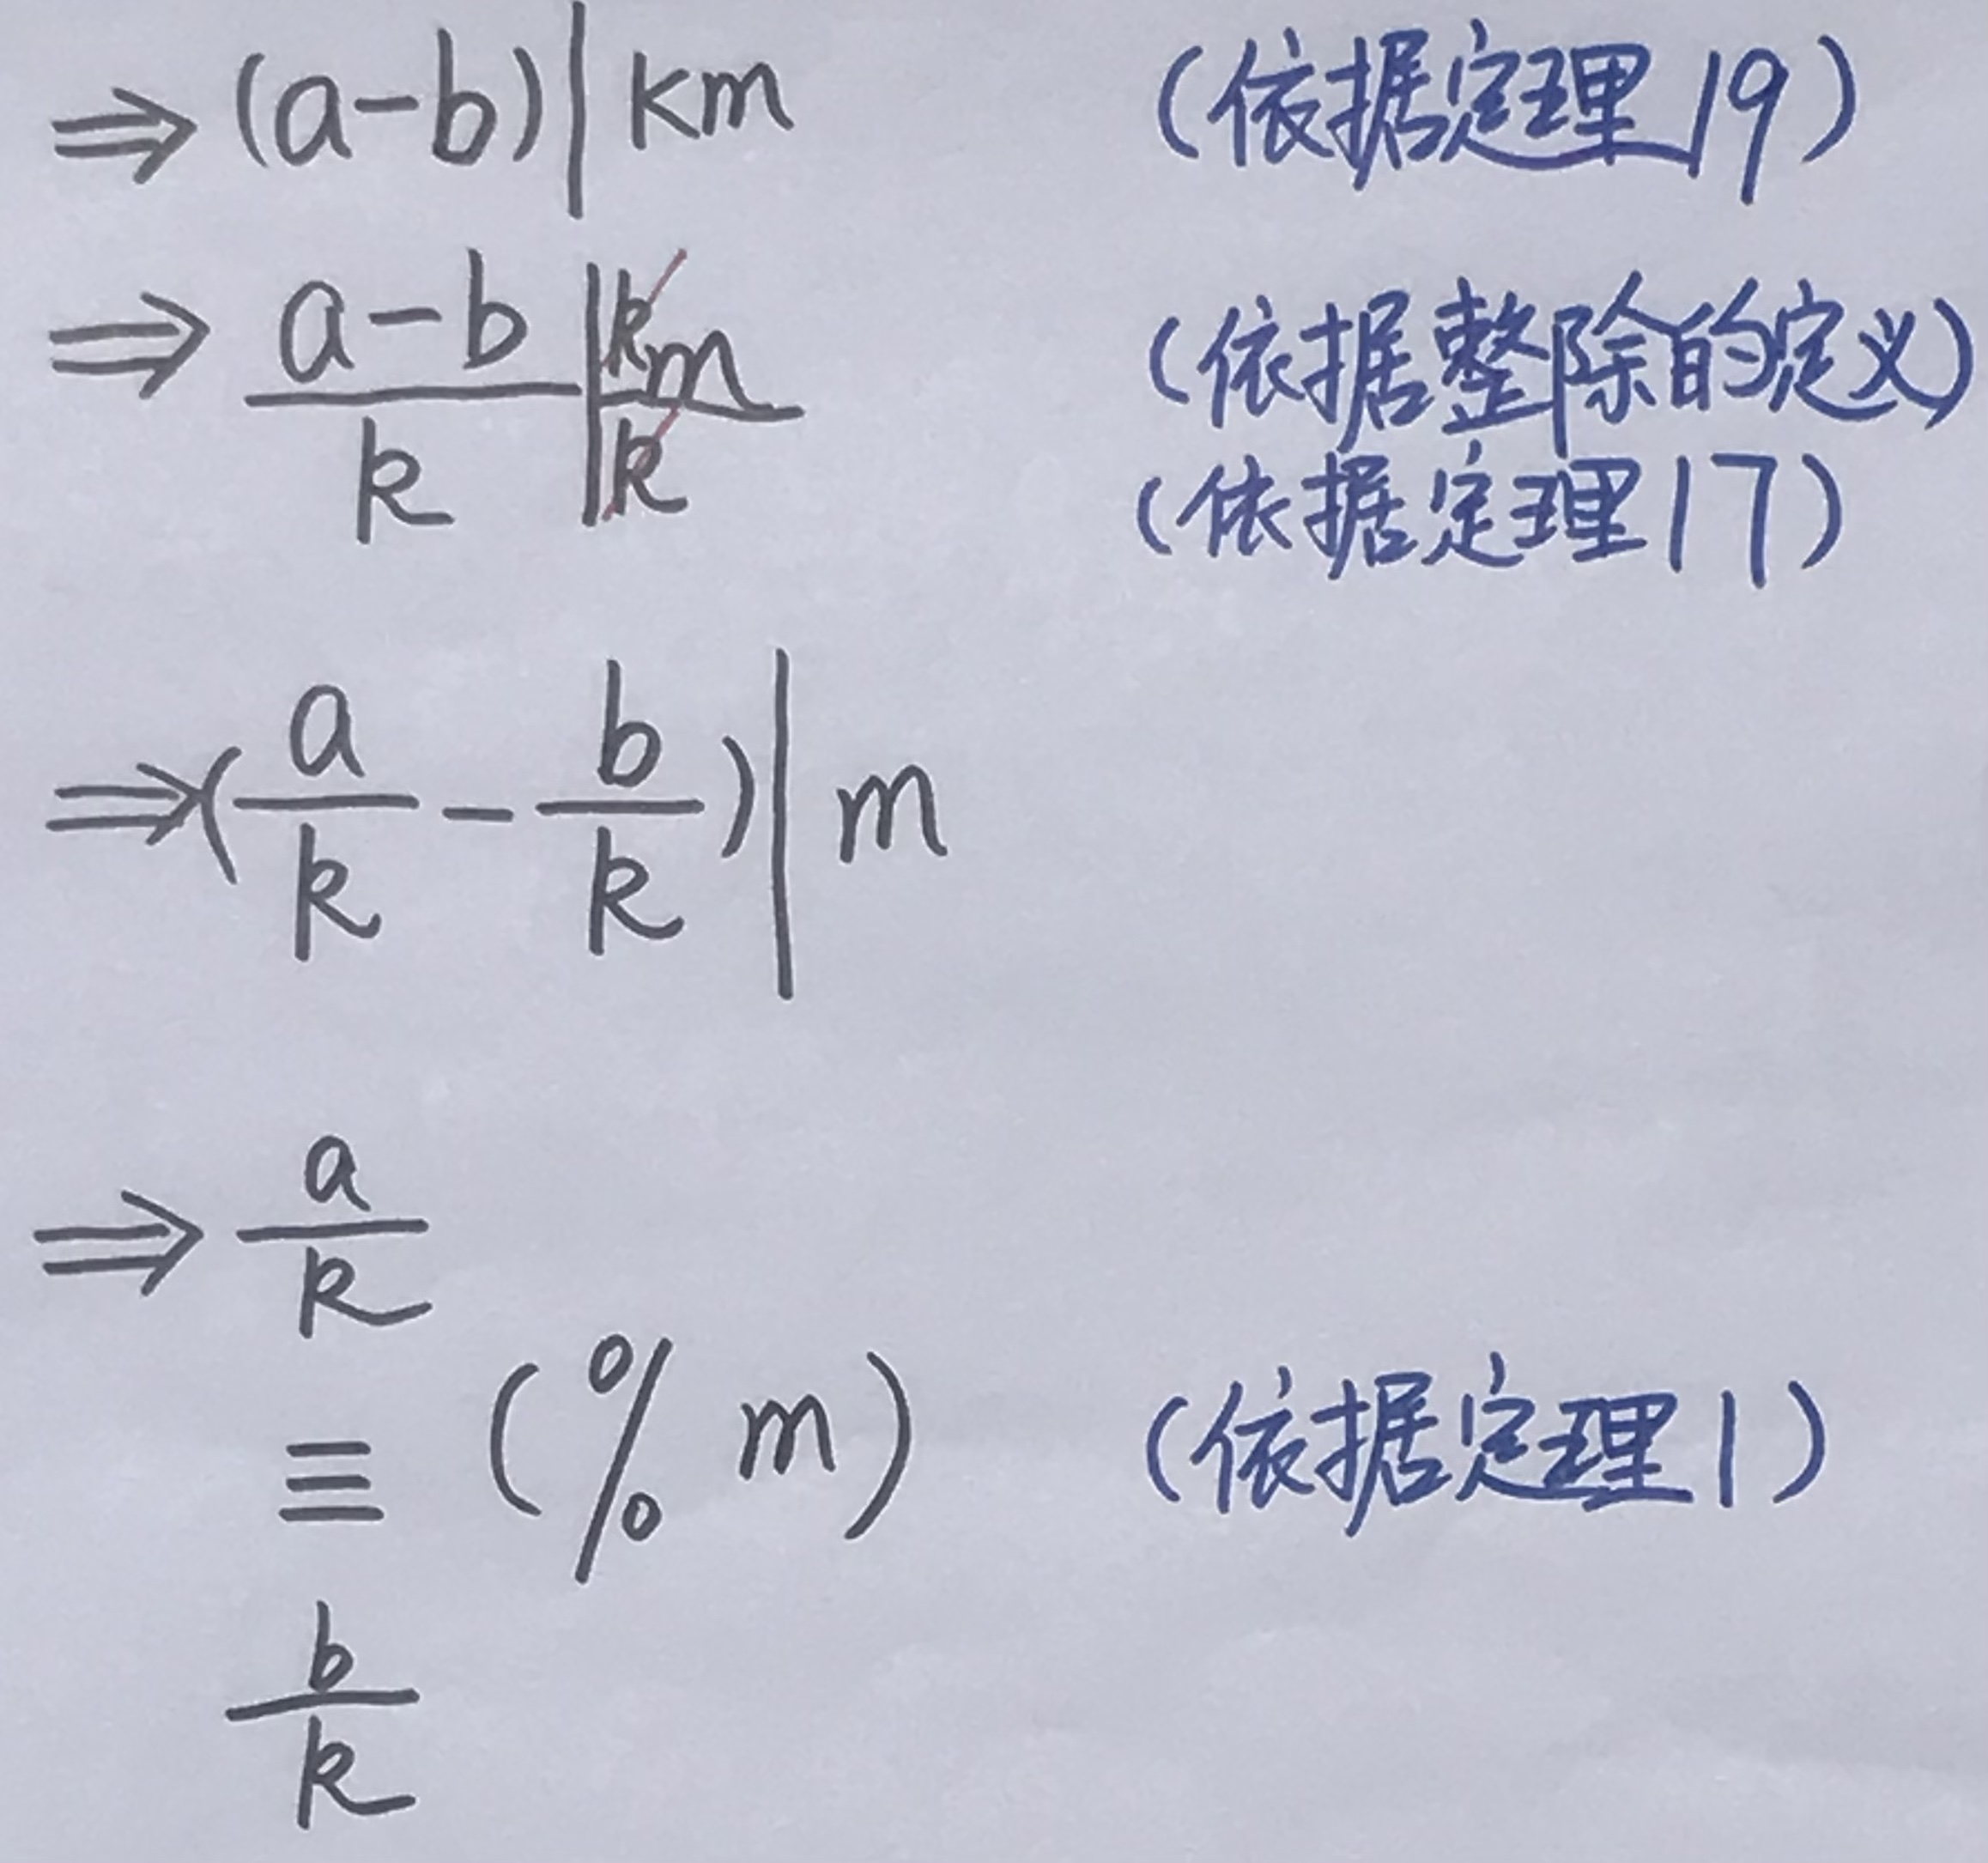 ⇒ (a-b) | km (依据定理19)
⇒ a-b | km (依据整除的定义)
k | k (依据定理17)
⇒ (a/k - b/k) | m
⇒ a/k
≡ (% m) (依据定理1)
b/k